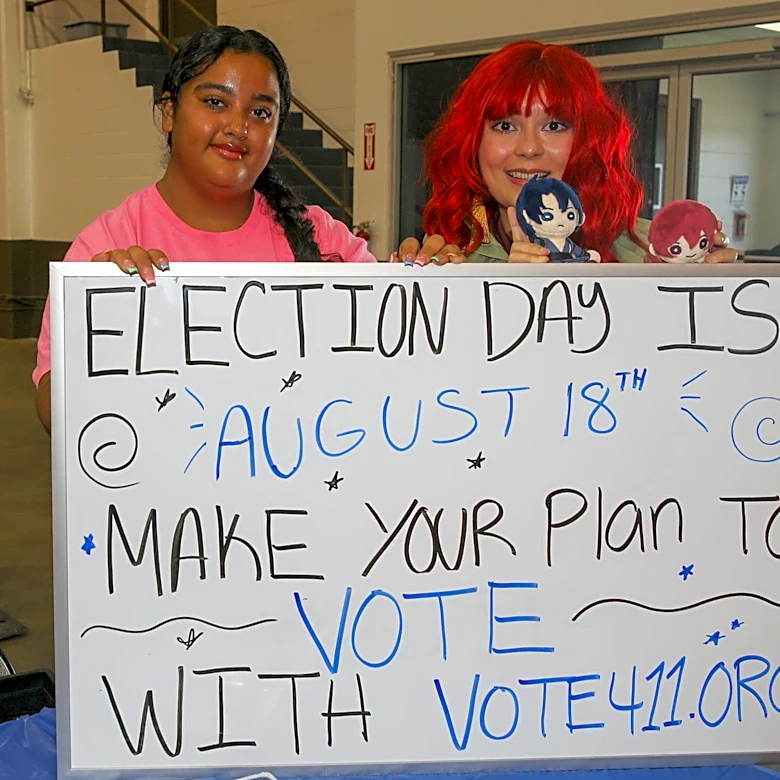 ELECTION DAY IS
AUGUST 18TH
MAKE YOUR Plan TO
VOTE
WITH VOTE411.ORG